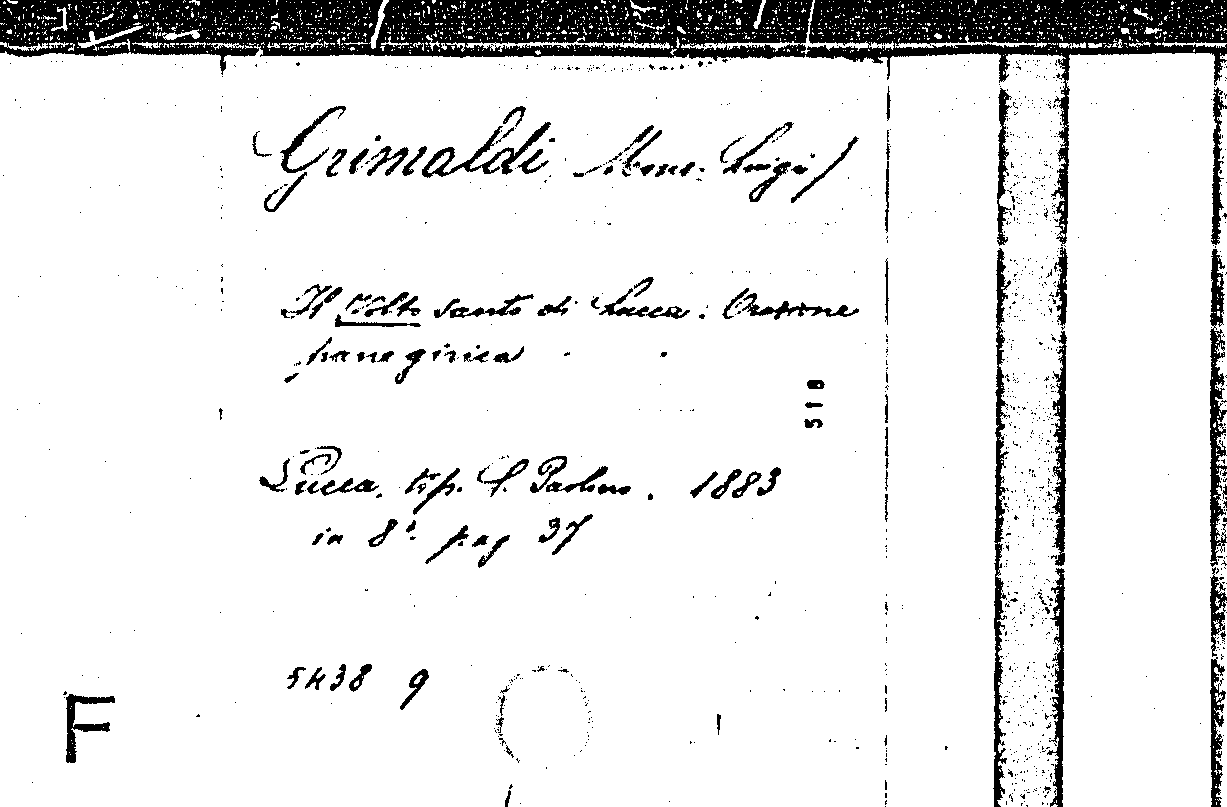 Grimaldi Mons. Luigi /
Il Volto santo di Lucca. Orazione
panegirica
518
Lucca, tip. S. Paolino. 1883
in 8°. pag 37
5438 9
F